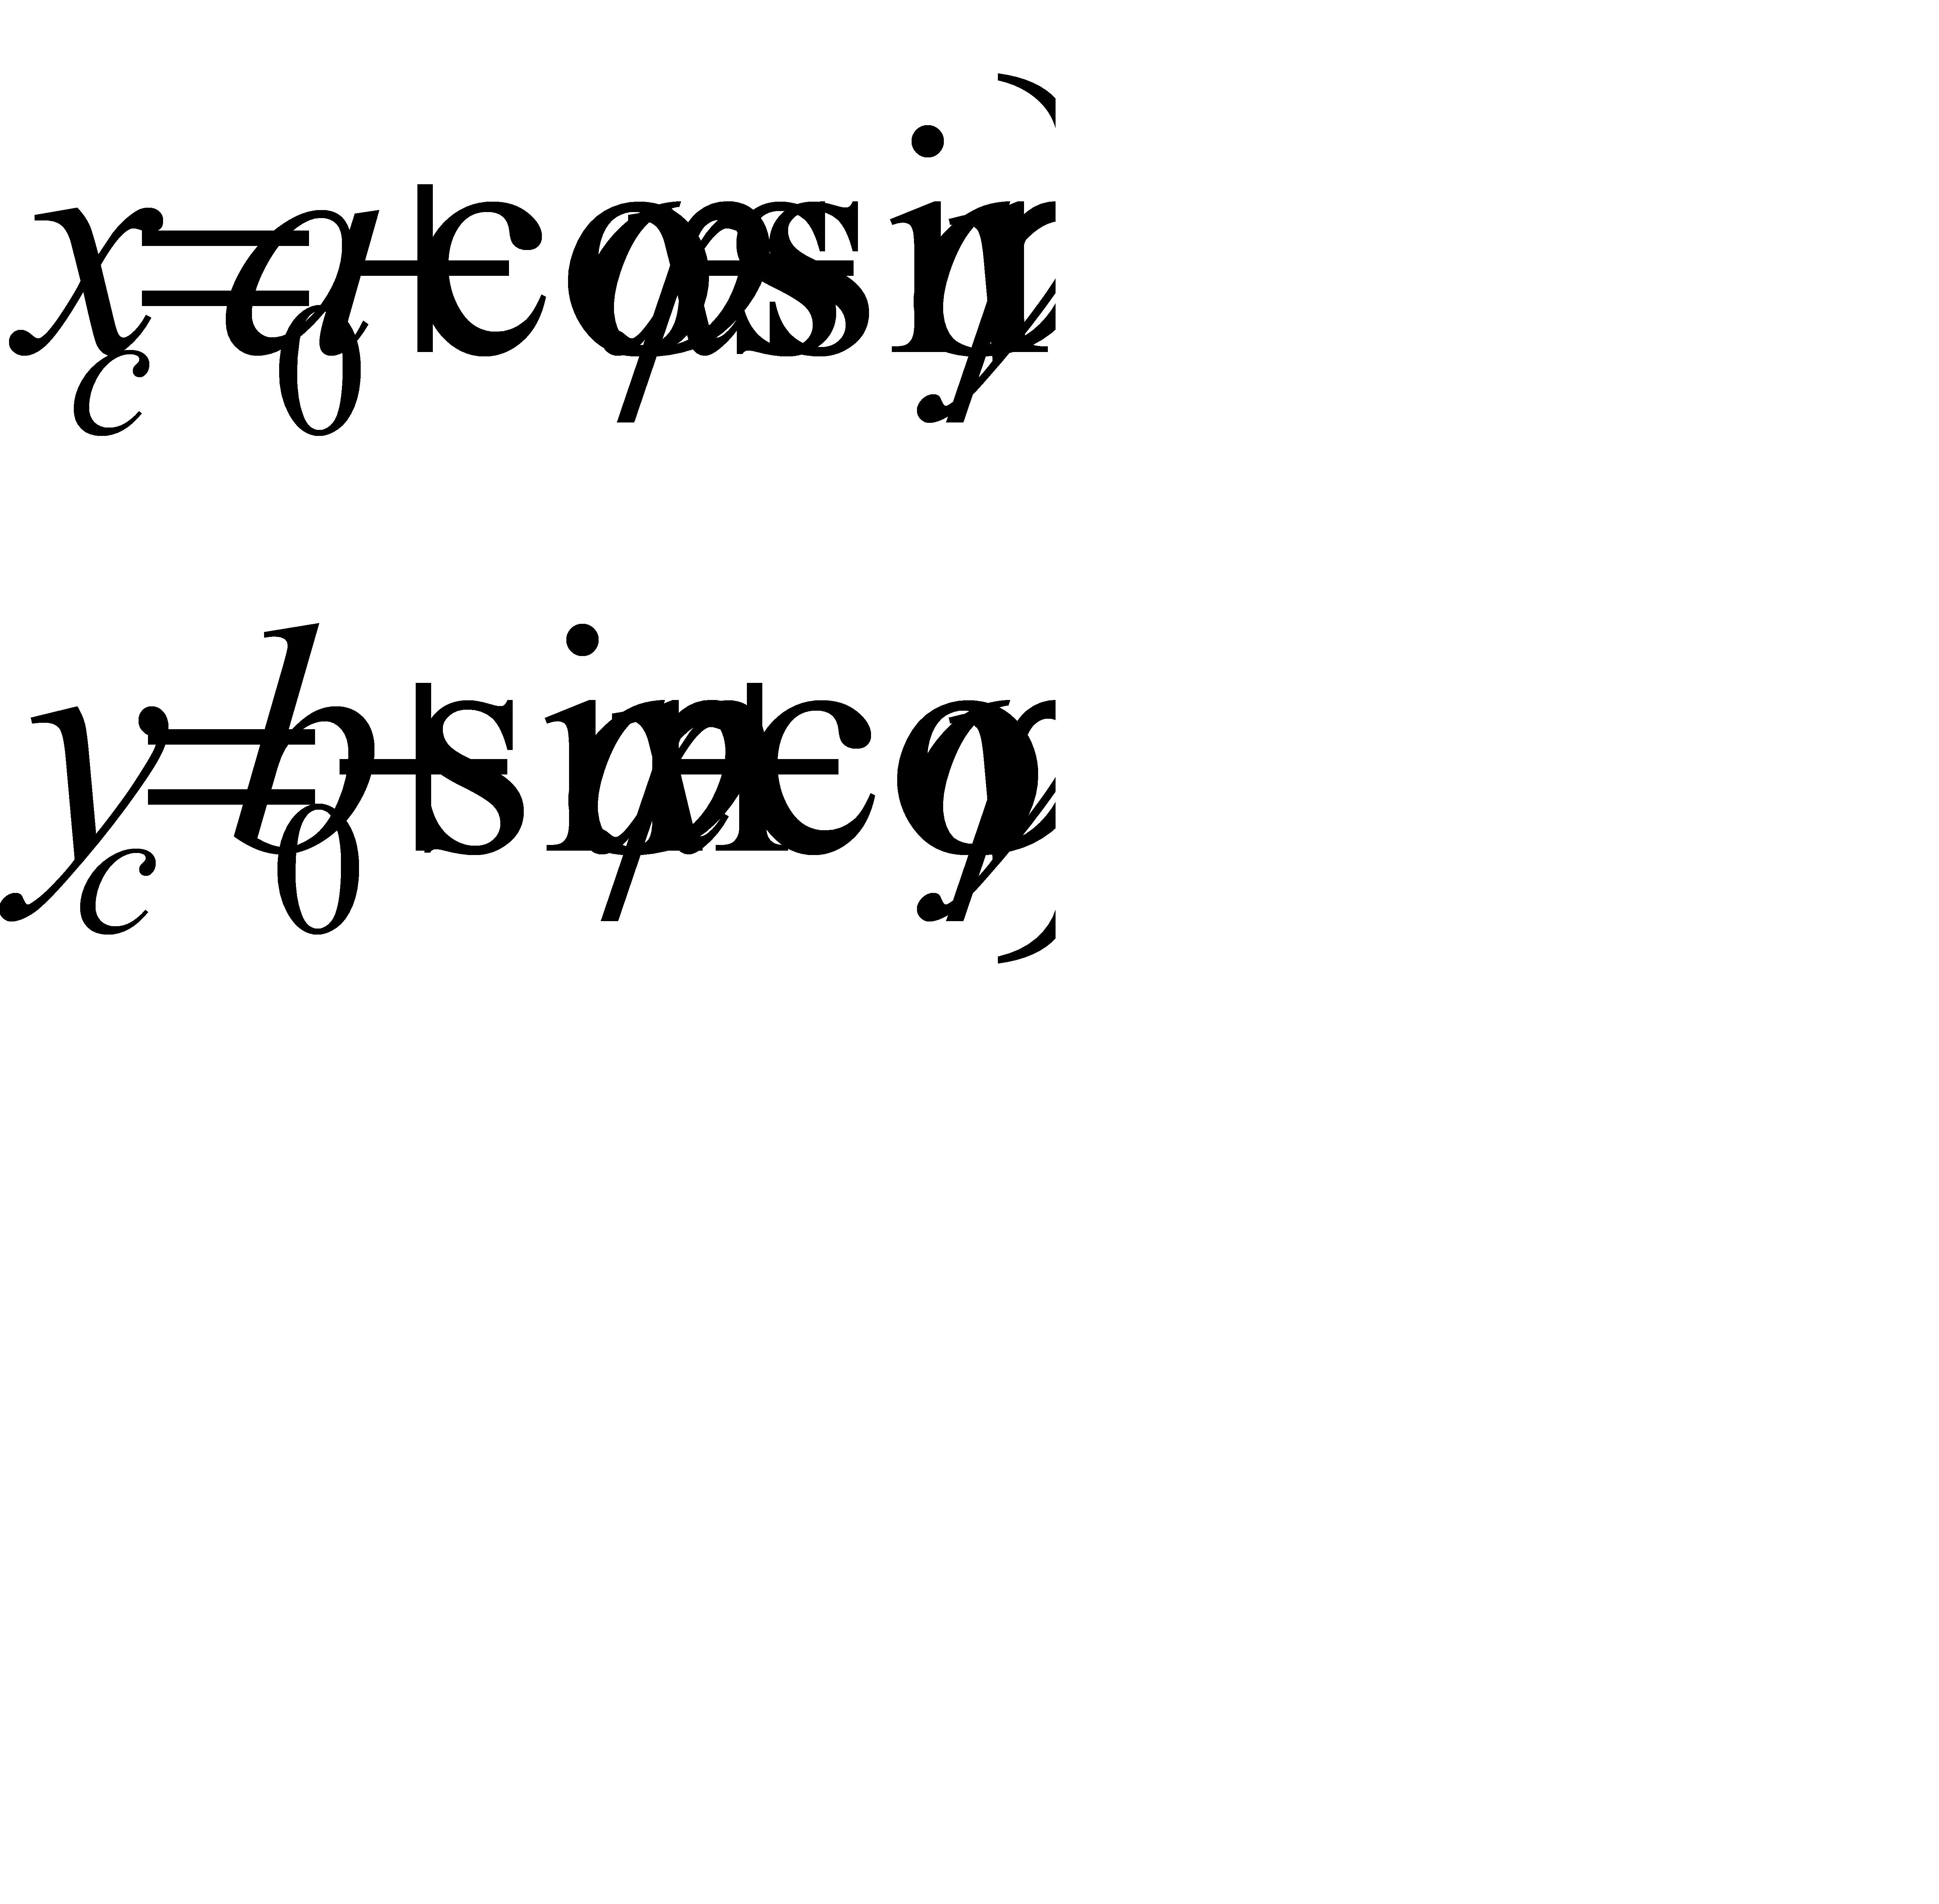 x_c = a_0 + cos φ x − sin φ y
y_c = b_0 + sin φ x + cos φ y